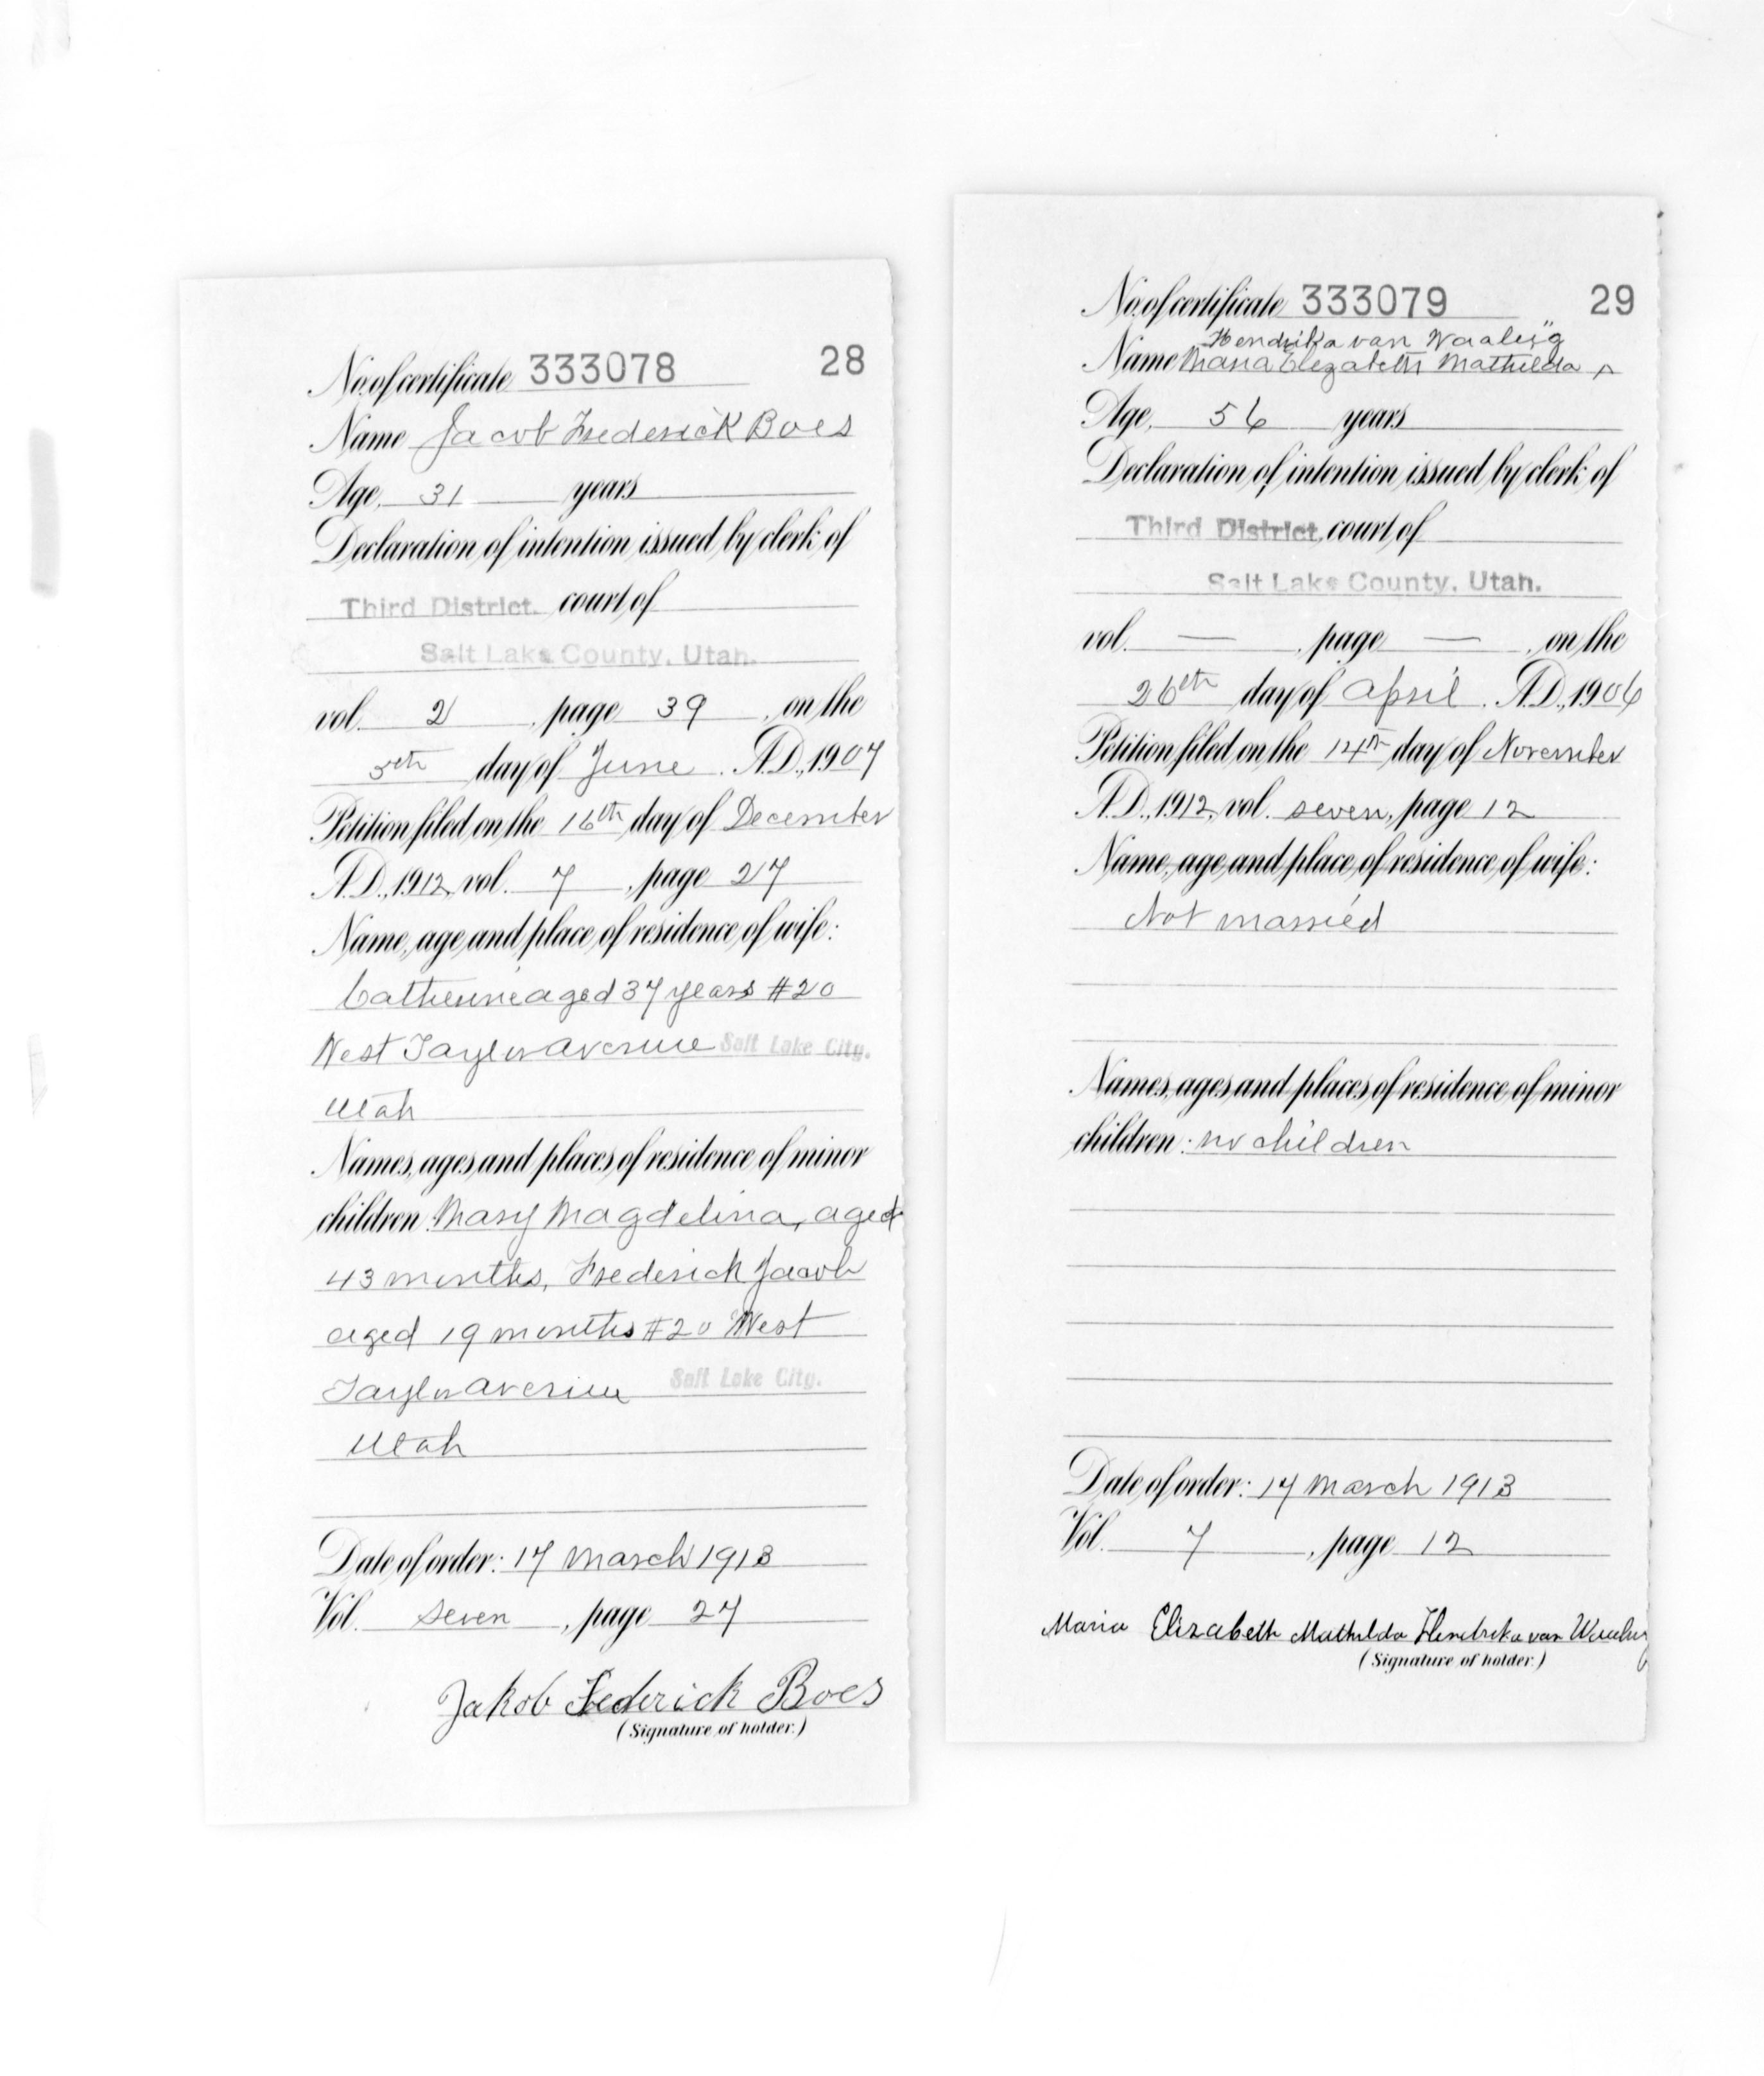 No. of certificate 333078 28
Name Jacob Frederick Boes
Age, 31 years
Declaration of intention issued by clerk of
Third District. court of
Salt Lake County, Utah.
vol. 2, page 39, on the
5th day of June. A.D., 1907
Petition filed on the 16th day of December
A.D., 1912, vol. 7, page 27
Name, age and place of residence of wife:
Catherine aged 37 years #20
West Taylor avenue Salt Lake City.
Utah
Names, ages and places of residence of minor
children Mary Magdelina, aged
43 months, Frederick Jacob
aged 19 months #20 West
Taylor avenue Salt Lake City.
Utah
Date of order: 17 March 1913
Vol. seven, page 27
Jakob Federick Boes
(Signature of holder.)
No. of certificate 333079 29
Hendrika van Waaleÿg
Name Maria Elizabeth Mathilda ^
Age, 56 years
Declaration of intention issued by clerk of
Third District, court of
Salt Lake County, Utah.
vol. —, page —, on the
26th day of April. A.D., 1906
Petition filed on the 14th day of November
A.D., 1912, vol. seven, page 12
Name, age and place of residence of wife:
Not married
Names, ages and places of residence of minor
children: no children
Date of order: 17 March 1913
Vol. 7, page 12
Maria Elizabeth Mathilda Hendrika van
(Signature of holder.)